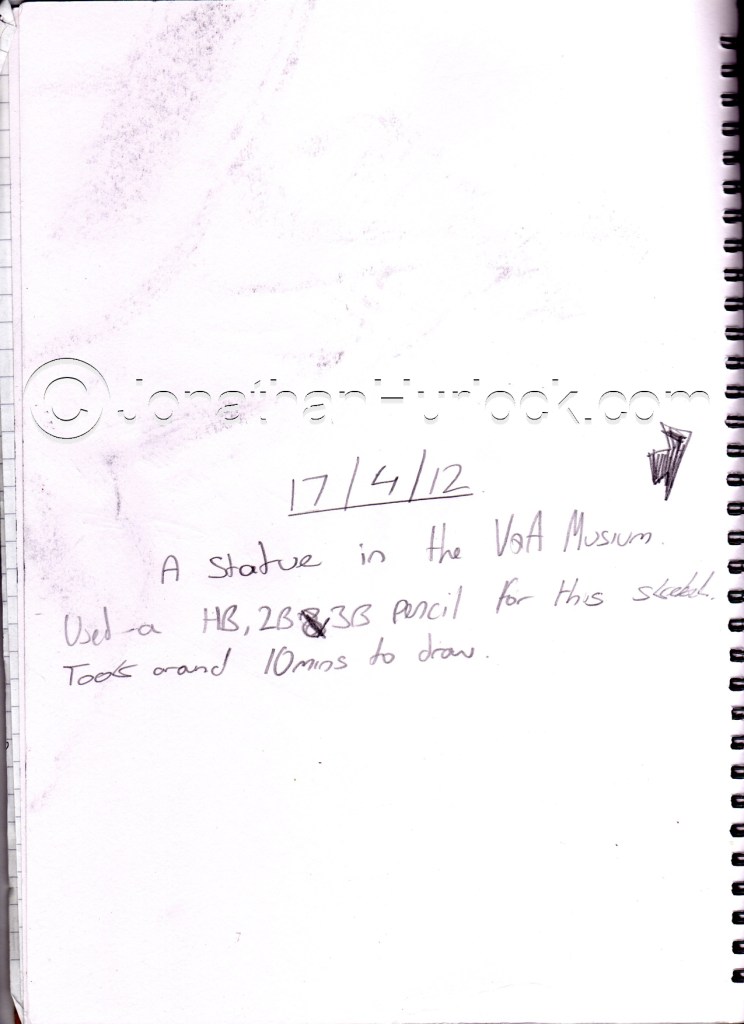 © JonathanHurlock.com
17/4/12
A Statue in the V&A Musium.
Used a HB, 2B & 3B pencil for this sketch.
Took around 10mins to draw.